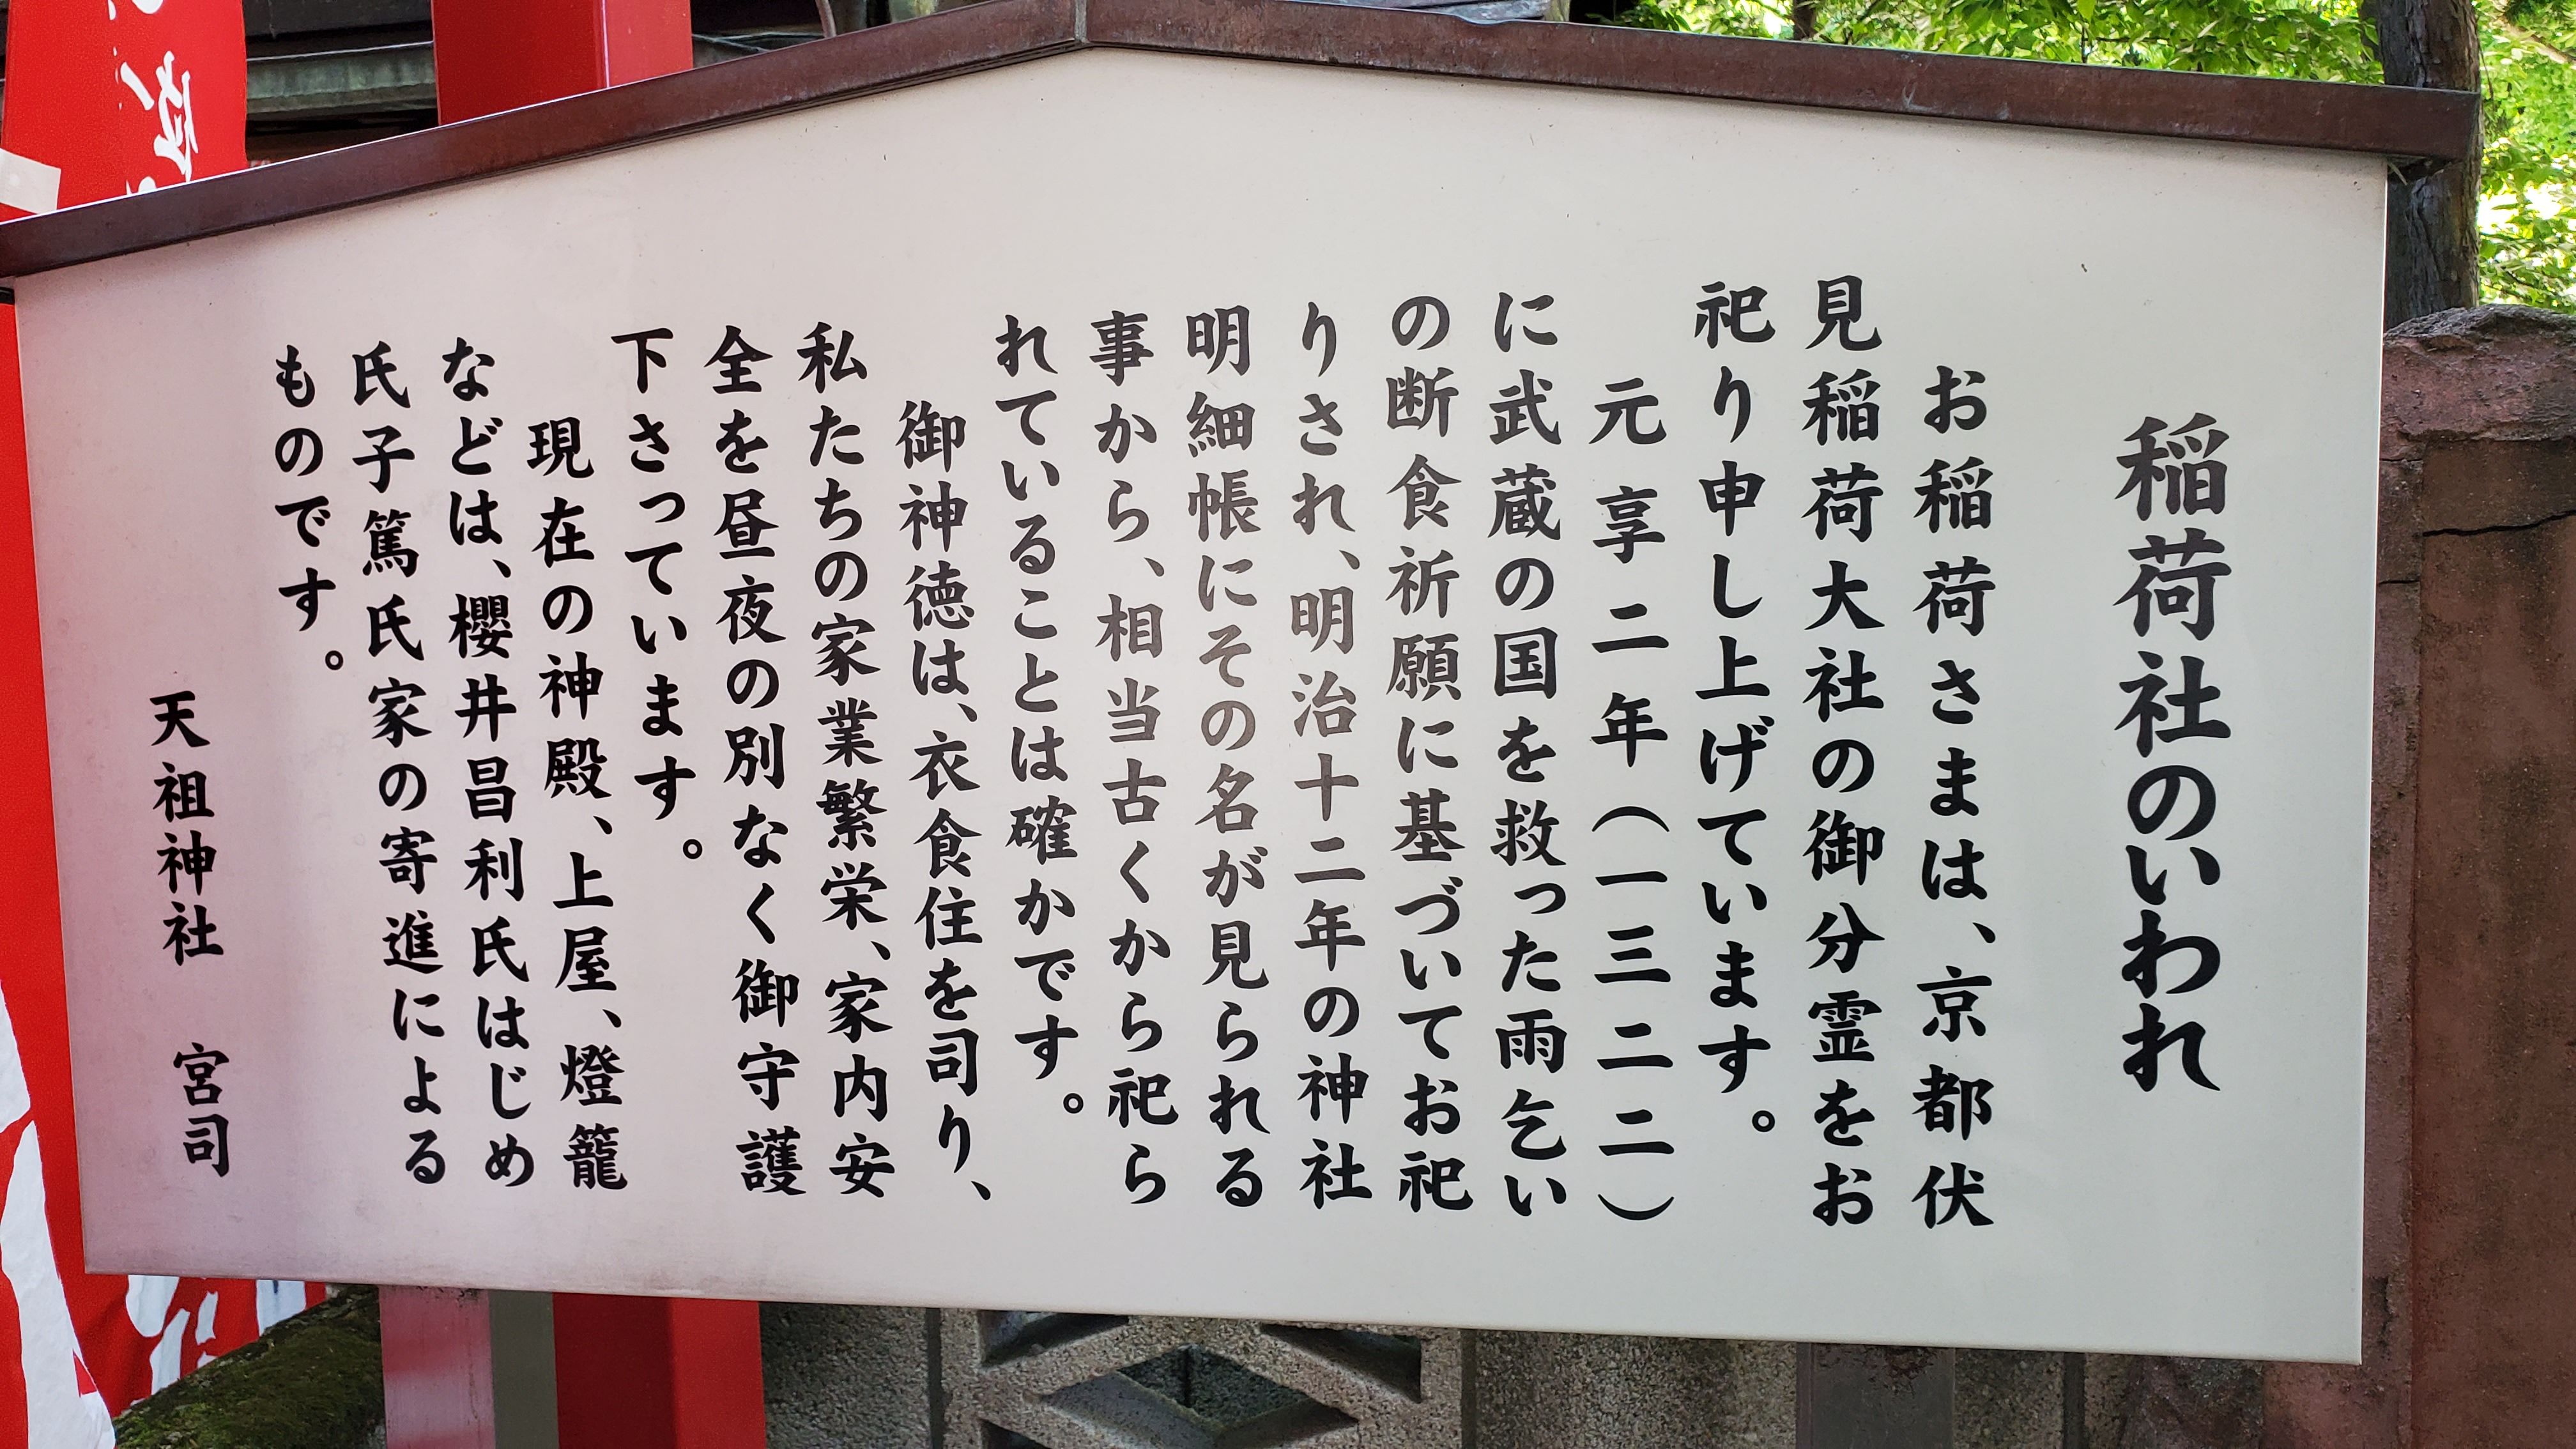 稲荷社のいわれ
お稲荷さまは、京都伏
見稲荷大社の御分霊をお
祀り申し上げています。
元享二年（一三二二）
に武蔵の国を救った雨乞い
の断食祈願に基づいてお祀
りされ、明治十二年の神社
明細帳にその名が見られる
事から、相当古くから祀ら
れていることは確かです。
御神徳は、衣食住を司り、
私たちの家業繁栄、家内安
全を昼夜の別なく御守護
下さっています。
現在の神殿、上屋、燈籠
などは、櫻井昌利氏はじめ
氏子篤氏家の寄進による
ものです。
天祖神社　宮司